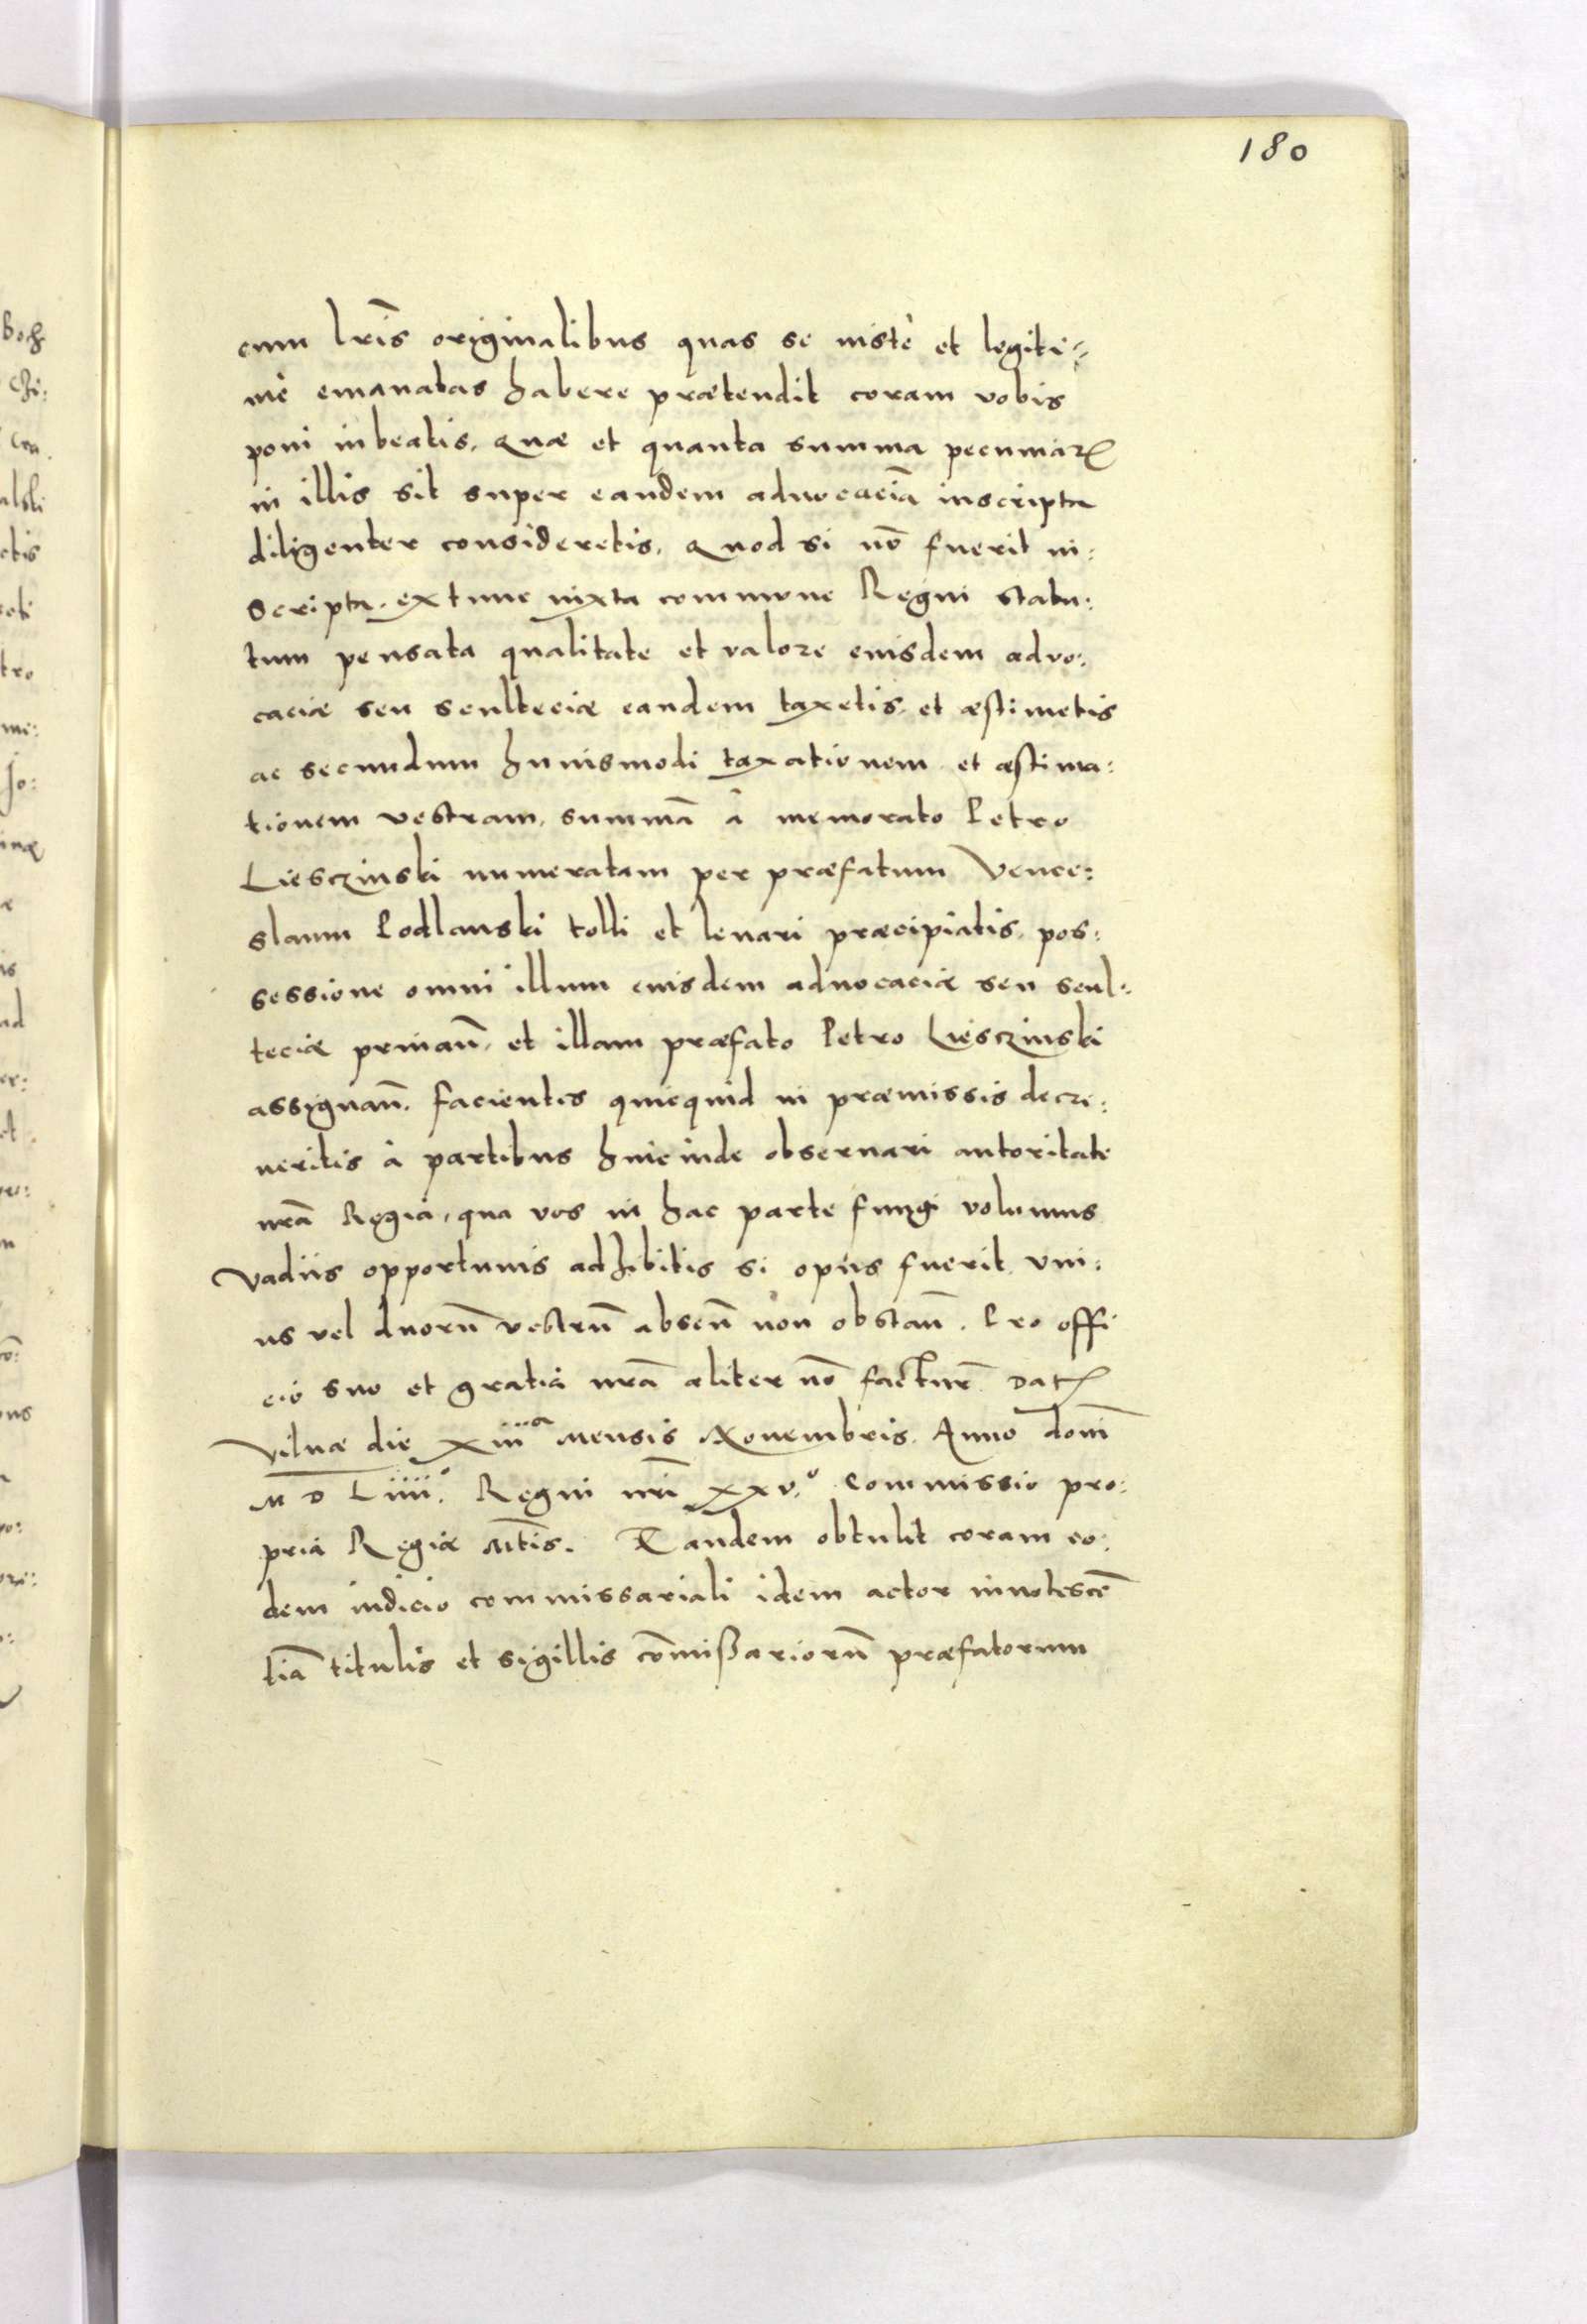 180
cum lr̄is originalibus quas se iustè et legiti:
mè emanatas habere prætendit coram vobis
poni iubeatis. Quæ et quanta summa pecuniarꝝ
in illis sit super eandem aduocaciā inscripta
diligenter consideretis. Quod si nō fuerit in:
scripta. extunc iuxta commune Regni statu:
tum pensata qualitate et valore eiusdem advo:
caciæ seu sculteciæ eandem taxetis. et æstimetis
ac secundum huiusmodi taxationem et æstima:
tionem vestram, summā à memorato Petro
Liesczinski numeratam per præfatum Vence:
slaum Podlauski tolli et leuari præcipiatis. pos:
sessione omni illum eiusdem aduocaciæ seu scul:
teciæ priuan̄. et illam præfato Petro Liesczinski
assignan̄. facientes quicquid in præmissis decre:
ueritis à partibus hincinde obseruari autoritate
nr̄a Regia, qua vos in hac parte fungi volumus
vadiis opportunis adhibitis si opus fuerit. vni:
us vel duorū vestrū absen̄ non obstan̄. Pro offi
cio suo et gratia nr̄a aliter nō facturi. Datꝝ
Vilnæ die xiiiᵃ mensis Nouembris. Anno domī
M D Liiii.° Regni nr̄i xxv.° Commissio pro:
pria Regiæ Mt̄is. Tandem obtulit coram eo:
dem iudicio commissariali idem actor innotescē
tiā titulis et sigillis cōmißariorū præfatorum
Boꝝ
chi:
alski
ctis
tro
me:
Jo:
inæ